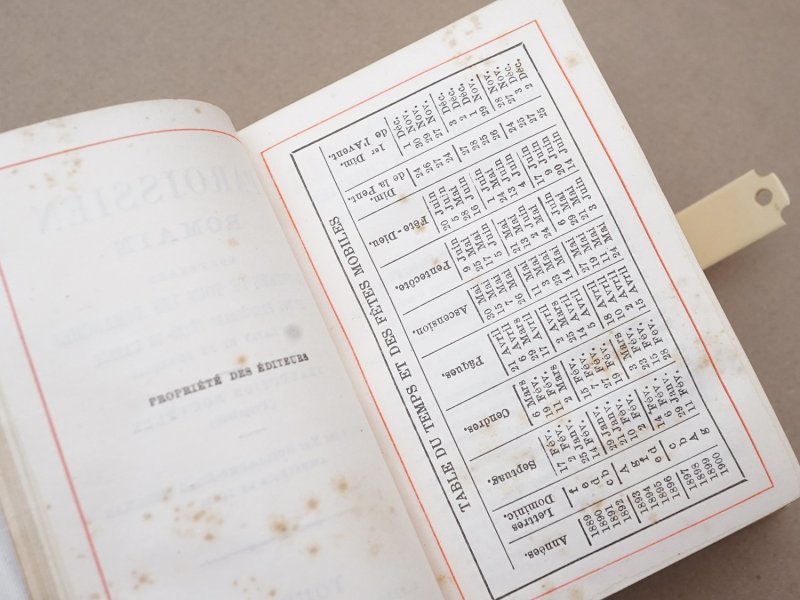 PROPRIÉTÉ DES ÉDITEURS
TABLE DU TEMPS ET DES FÊTES MOBILES
Années. Lettres Dominic. Septuag. Cendres. Pâques. Ascension. Pentecôte. Fête-Dieu. Dim. de la Pent. 1er Dim. de l'Avent.
1889 f 17 Fév. 6 Mars 21 Avril 30 Mai 9 Juin 20 Juin 24 1 Déc.
1890 e 2 Fév. 19 Fév. 6 Avril 15 Mai 25 Mai 5 Juin 26 30 Nov.
1891 d 25 Janv. 11 Fév. 29 Mars 7 Mai 17 Mai 28 Mai 27 29 Nov.
1892 c b 14 Fév. 2 Mars 17 Avril 26 Mai 5 Juin 16 Juin 24 27 Nov.
1893 A 29 Janv. 15 Fév. 2 Avril 11 Mai 21 Mai 1 Juin 27 3 Déc.
1894 g 21 Janv. 7 Fév. 25 Mars 3 Mai 13 Mai 24 Mai 28 2 Déc.
1895 f 10 Fév. 27 Fév. 14 Avril 23 Mai 2 Juin 13 Juin 25 1 Déc.
1896 e d 2 Fév. 19 Fév. 5 Avril 14 Mai 24 Mai 4 Juin 26 29 Nov.
1897 c 14 Fév. 3 Mars 18 Avril 27 Mai 6 Juin 17 Juin 24 28 Nov.
1898 b 6 Fév. 23 Fév. 10 Avril 19 Mai 29 Mai 9 Juin 25 27 Nov.
1899 A 29 Janv. 15 Fév. 2 Avril 11 Mai 21 Mai 27 3 Déc.
1900 g 11 Fév. 28 Fév. 15 Avril 24 Mai 3 Juin 14 Juin 25